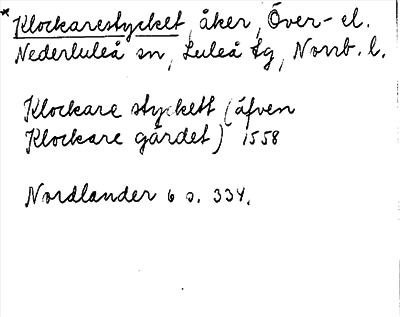 *Klockarestycket, åker, Över- el.
Nederluleå sn, Luleå tg, Norrb. l.
Klockare styckett (äfven
Klockare gårdet) 1558
Nordlander 6 s. 334.